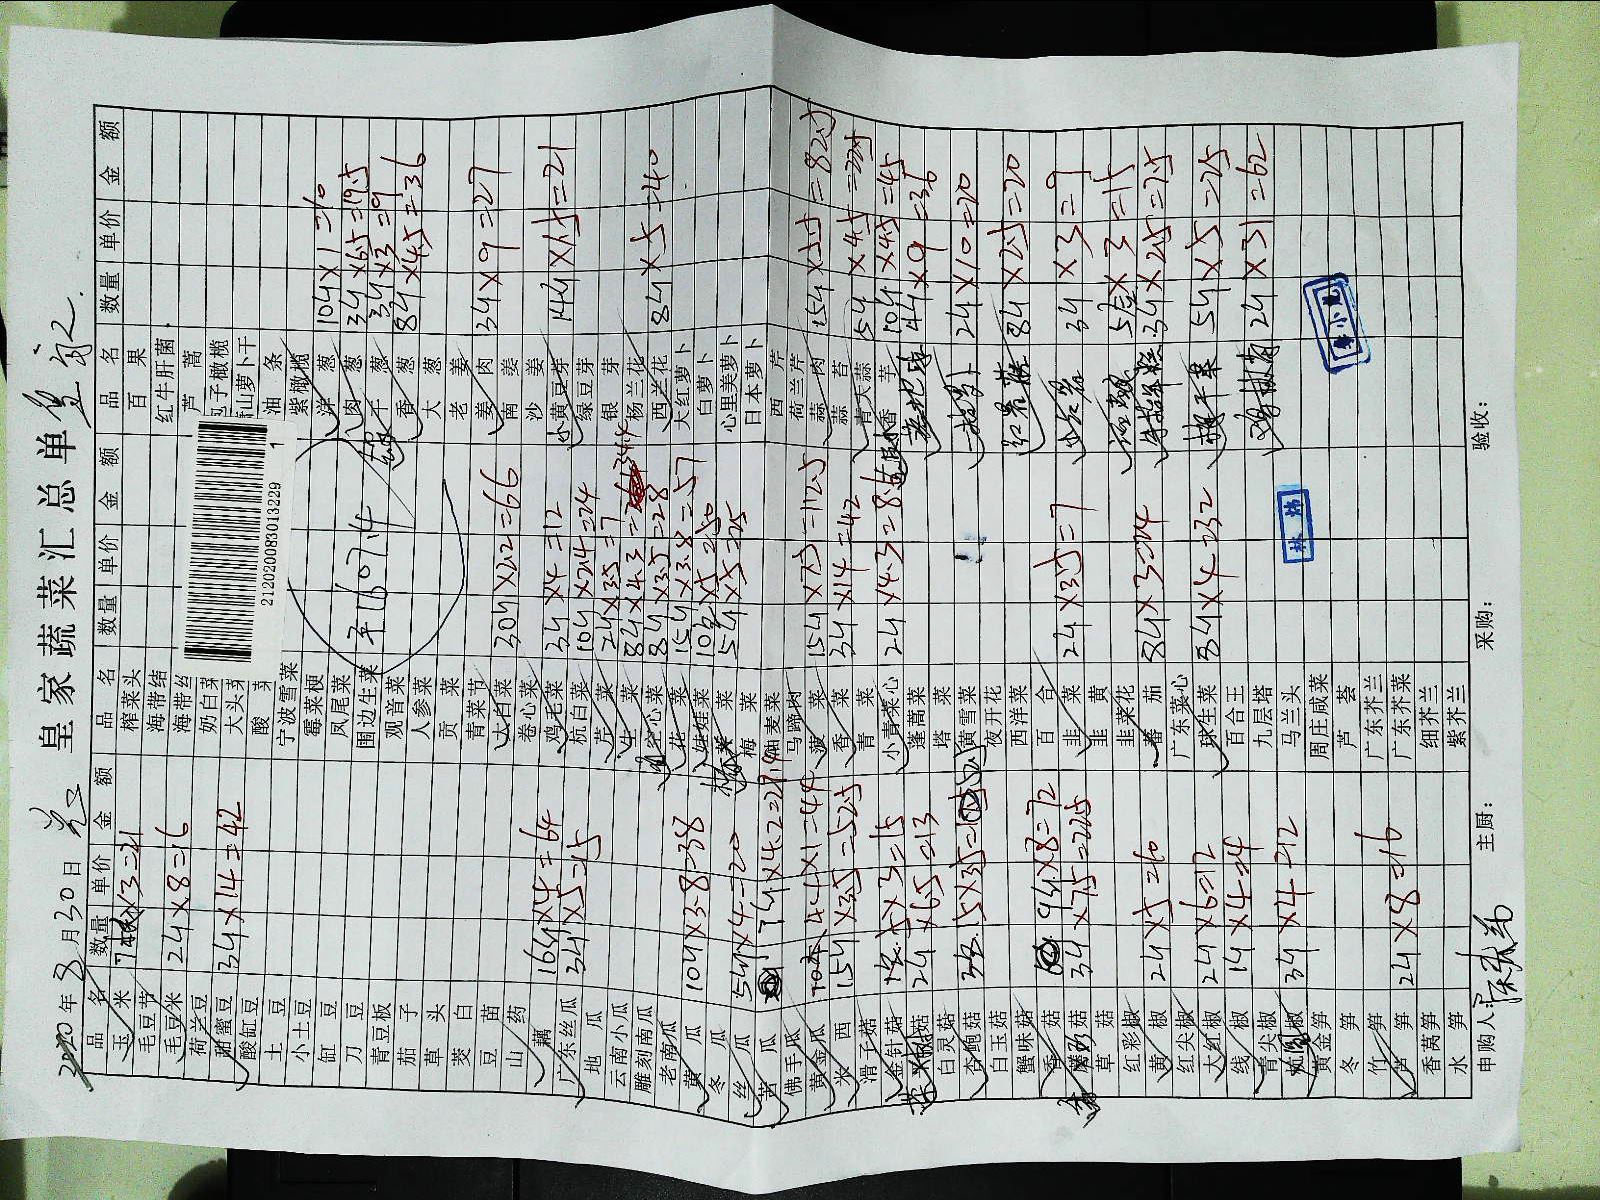 皇家蔬菜汇总单
2020年8月30日
品名 数量 单价 金额
玉米 7斤×3=21
毛豆节
毛豆米 2斤×8=16
荷兰豆
甜蜜豆 3斤×14=42
酸缸豆
土豆
小土豆
缸豆
刀豆
青豆板
茄子
草头
茭白
豆苗
山药
藕 16斤×4=64
广东丝瓜 3斤×5=15
地瓜
云南小瓜
雕刻南瓜
老南瓜
黄瓜 10斤×3.8=38
冬瓜
丝瓜 5斤×4=20
茜瓜 7斤×4.2=29.4
佛手瓜
黄金瓜 44×1=44
米西 15斤×3.5=52.5
滑子菇
金针菇 5×3=15
茶树菇 2斤×6.5=13
白灵菇
杏鲍菇 15×3.5=52.5
白玉菇
蟹味菇
香菇 9斤×8=72
蘑菇 3斤×7.5=22.5
草菇
红彩椒
黄椒 2斤×5=10
红尖椒
大红椒 2斤×6=12
线椒 1斤×4=4
青尖椒
椒 3斤×4=12
黄金笋
冬笋
竹笋
芦笋 2斤×8=16
香莴笋
水笋
品名 数量 单价 金额
榨菜头
海带结
海带丝
奶白菜
大头菜
酸菜
宁波雪菜
霉菜梗
凤尾菜
围边生菜
观音菜
人参菜
贡菜
青菜节
大白菜 30斤×2.2=66
卷心菜
鸡毛菜 3斤×4=12
杭白菜 10斤×2.4=24
芹菜 2斤×3.5=7
生菜 8斤×4.3=34.4
空心菜 8斤×3.5=28
花菜 15斤×3.8=57
娃娃菜 10包×5=50
菜 5斤×5=25
梅菜
油麦菜
马蹄肉
菠菜 15斤×7.5=112.5
香菜 3斤×14=42
青菜
小青菜心 2斤×4.3=8.6
蓬蒿菜
塔菜
黄雪菜
夜开花
西洋菜
百合
韭菜 2斤×3.5=7
韭黄
韭菜花
番茄 8斤×3=24
广东菜心
球生菜 8斤×4=32
百合王
九层塔
马兰头
周庄咸菜
芦荟
广东芥兰
广东芥菜
细芥兰
紫芥兰
212020083013229
1
1607.4
品名 数量 单价 金额
百果
红牛肝菌
芦蒿
包子橄榄
山萝卜干
油条
紫橄榄
洋葱 10斤×1=10
肉葱 3斤×6.5=19.5
干葱 3斤×3=9
香葱 8斤×4.5=36
大葱
老姜
姜肉 3斤×9=27
南姜
沙姜
小黄豆芽 14斤×1.5=21
绿豆芽
银芽
杨兰花
西兰花 8斤×5=40
大红萝卜
白萝卜
心里美萝卜
日本萝卜
西芹
荷兰芹
蒜肉 15斤×5.5=82.5
蒜苔
青大蒜 5斤×4.5=22.5
香芋 10斤×4.5=45
4斤×9=36
萝卜 2斤×10=20
红薯 8斤×2.5=20
3斤×3=9
5×3=15
3斤×2.5=7.5
5斤×5=25
2斤×31=62
申购人：
主厨：
采购：
验收：